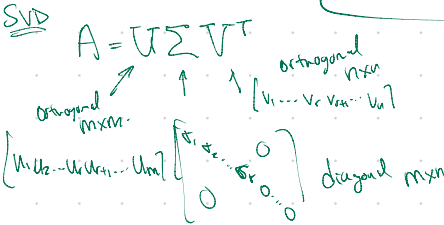 SVD
A = U Σ Vᵀ
orthogonal
n×n
[v₁ ... vᵣ vᵣ₊₁ ... vₙ]
orthogonal
m×m.
[u₁ u₂ ... uᵣ uᵣ₊₁ ... uₘ]
[σ₁ σ₂ ... σᵣ 0 ... 0]
0
0
diagonal m×n